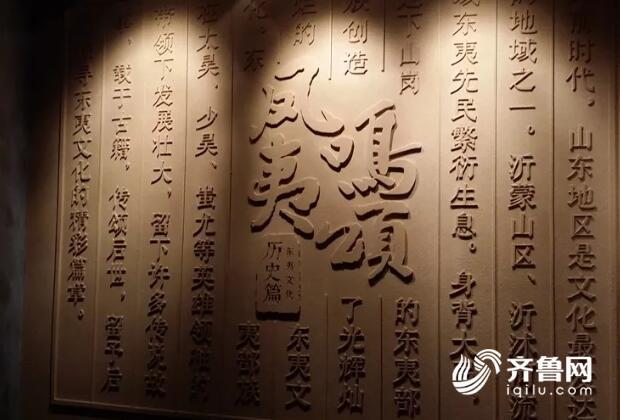 时代，山东地区是文化最
的地域之一。沂蒙山区、沂沭
成东夷先民繁衍生息。身背大
下山岗
的东夷部
创造
了光辉灿
的
东夷文
化，东
夷部族
凤鸣
夷颂
东夷文化
历史篇
在太昊、少昊、蚩尤等英雄领
带领下发展壮大，留下许多传说故
载于古籍，传颂后世，留于后
寻东夷文化的精彩篇章。
齐鲁网
iqilu.com